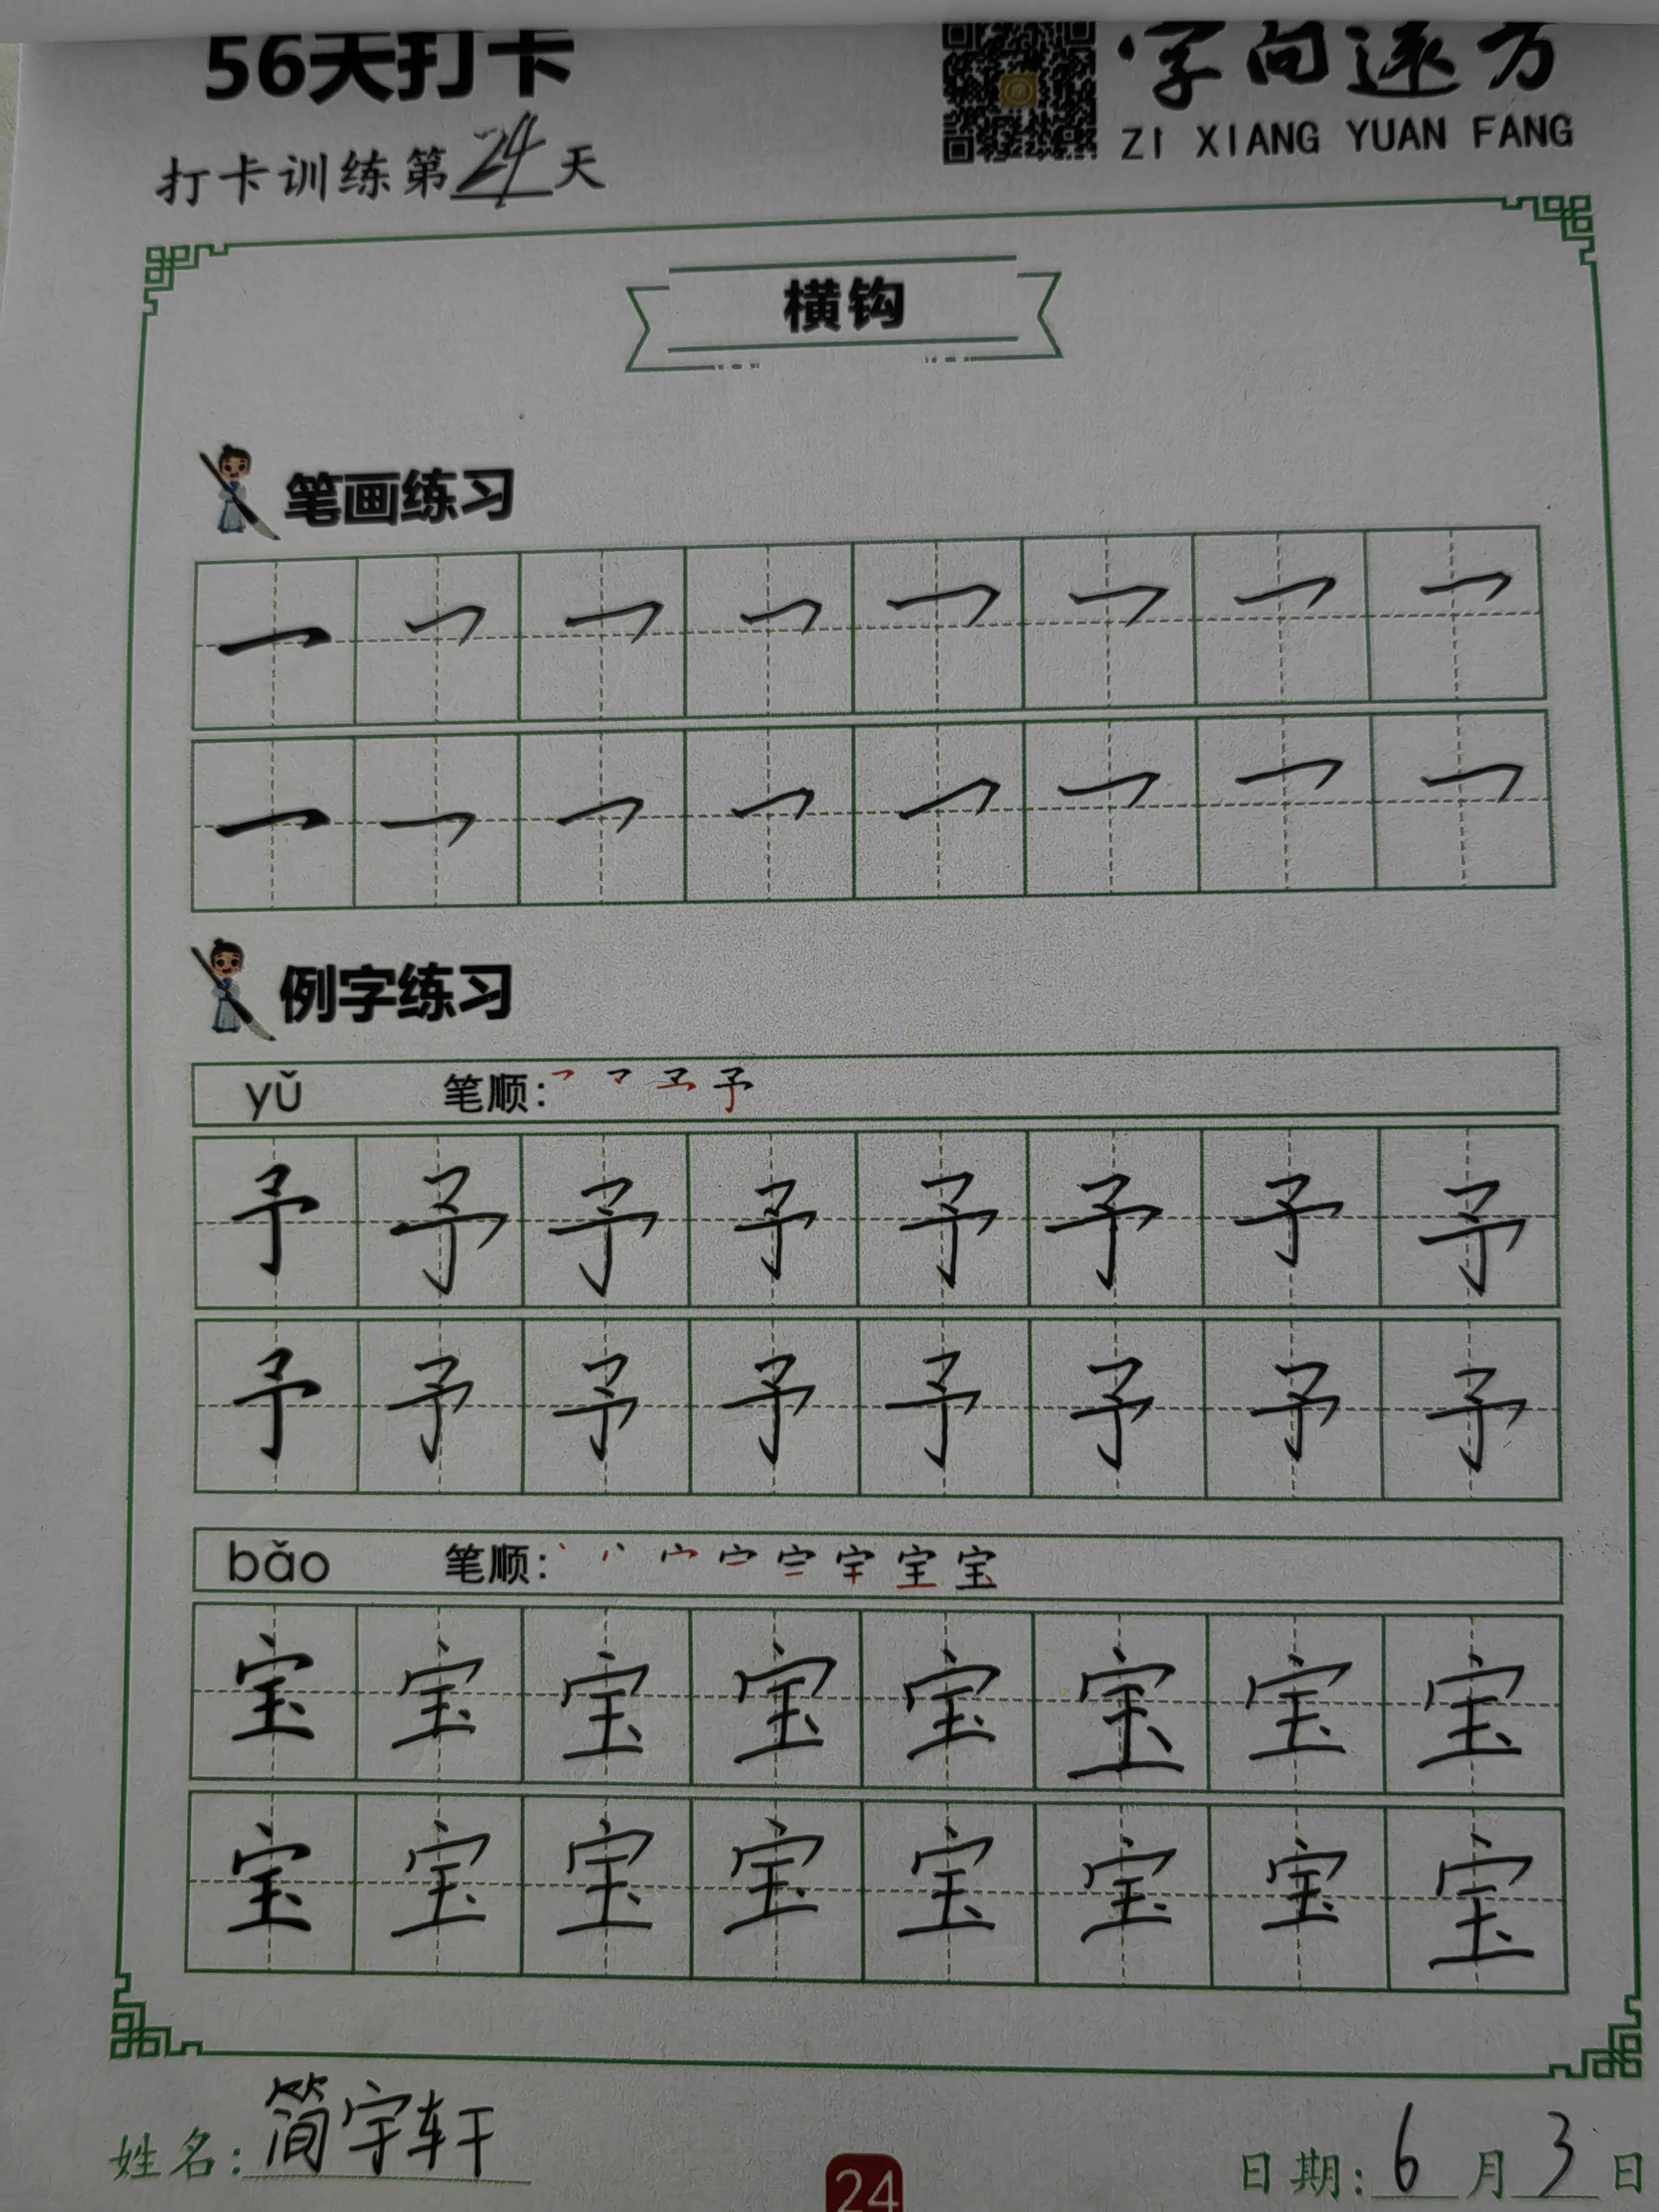 56天打卡
字向远方
ZI XIANG YUAN FANG
打卡训练第24天
横钩
笔画练习
㇖ ㇖ ㇖ ㇖ ㇖ ㇖ ㇖ ㇖
㇖ ㇖ ㇖ ㇖ ㇖ ㇖ ㇖ ㇖
例字练习
yǔ 笔顺: 予
予 予 予 予 予 予 予 予
予 予 予 予 予 予 予 予
bǎo 笔顺: 宝
宝 宝 宝 宝 宝 宝 宝 宝
宝 宝 宝 宝 宝 宝 宝 宝
姓名: 简宇轩
24
日期: 6月3日